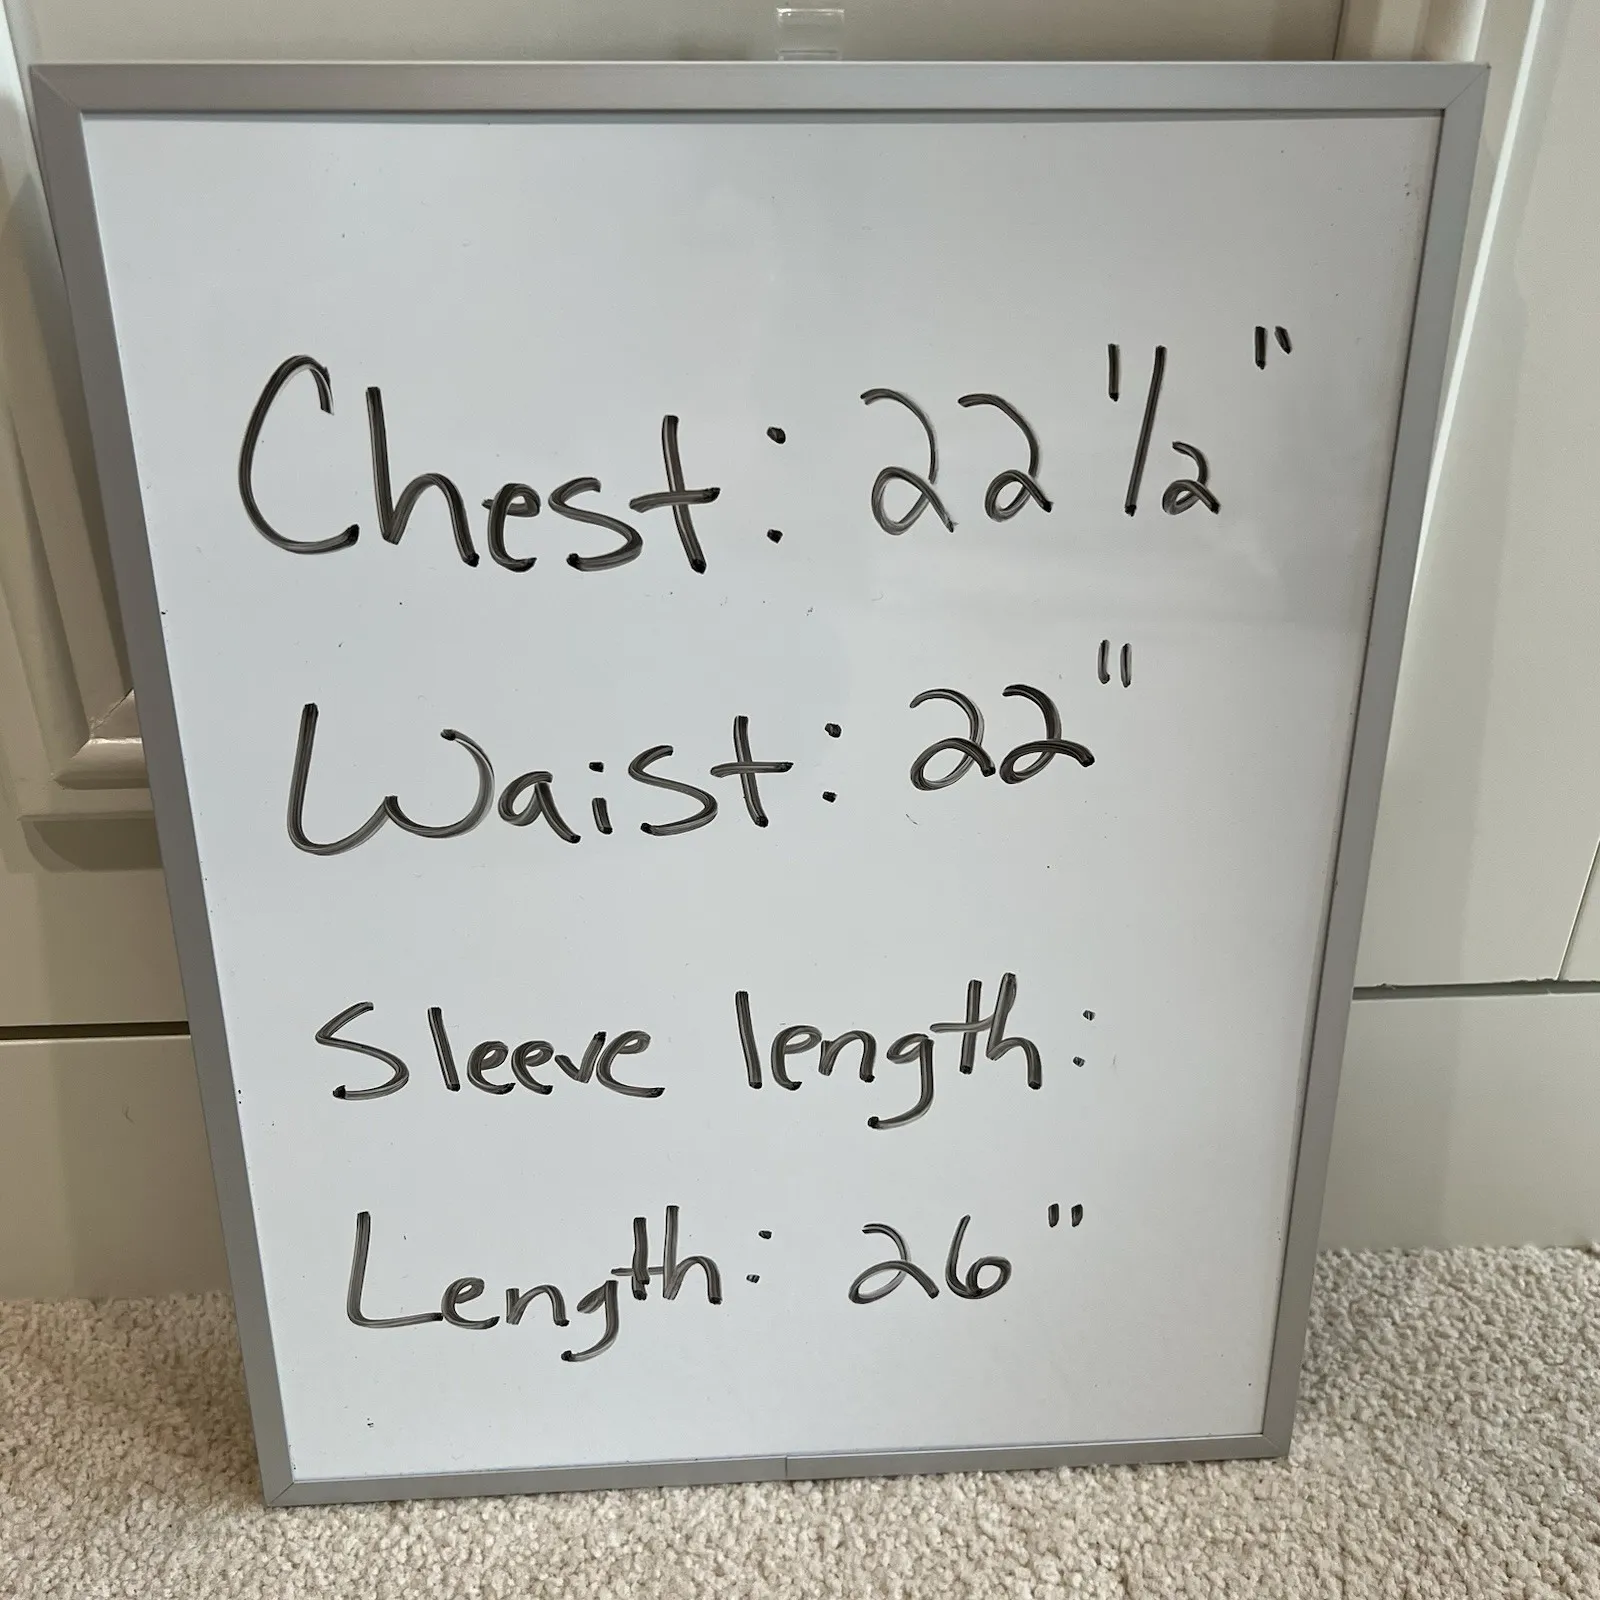 Chest: 22 1/2"
Waist: 22"
Sleeve length:
Length: 26"